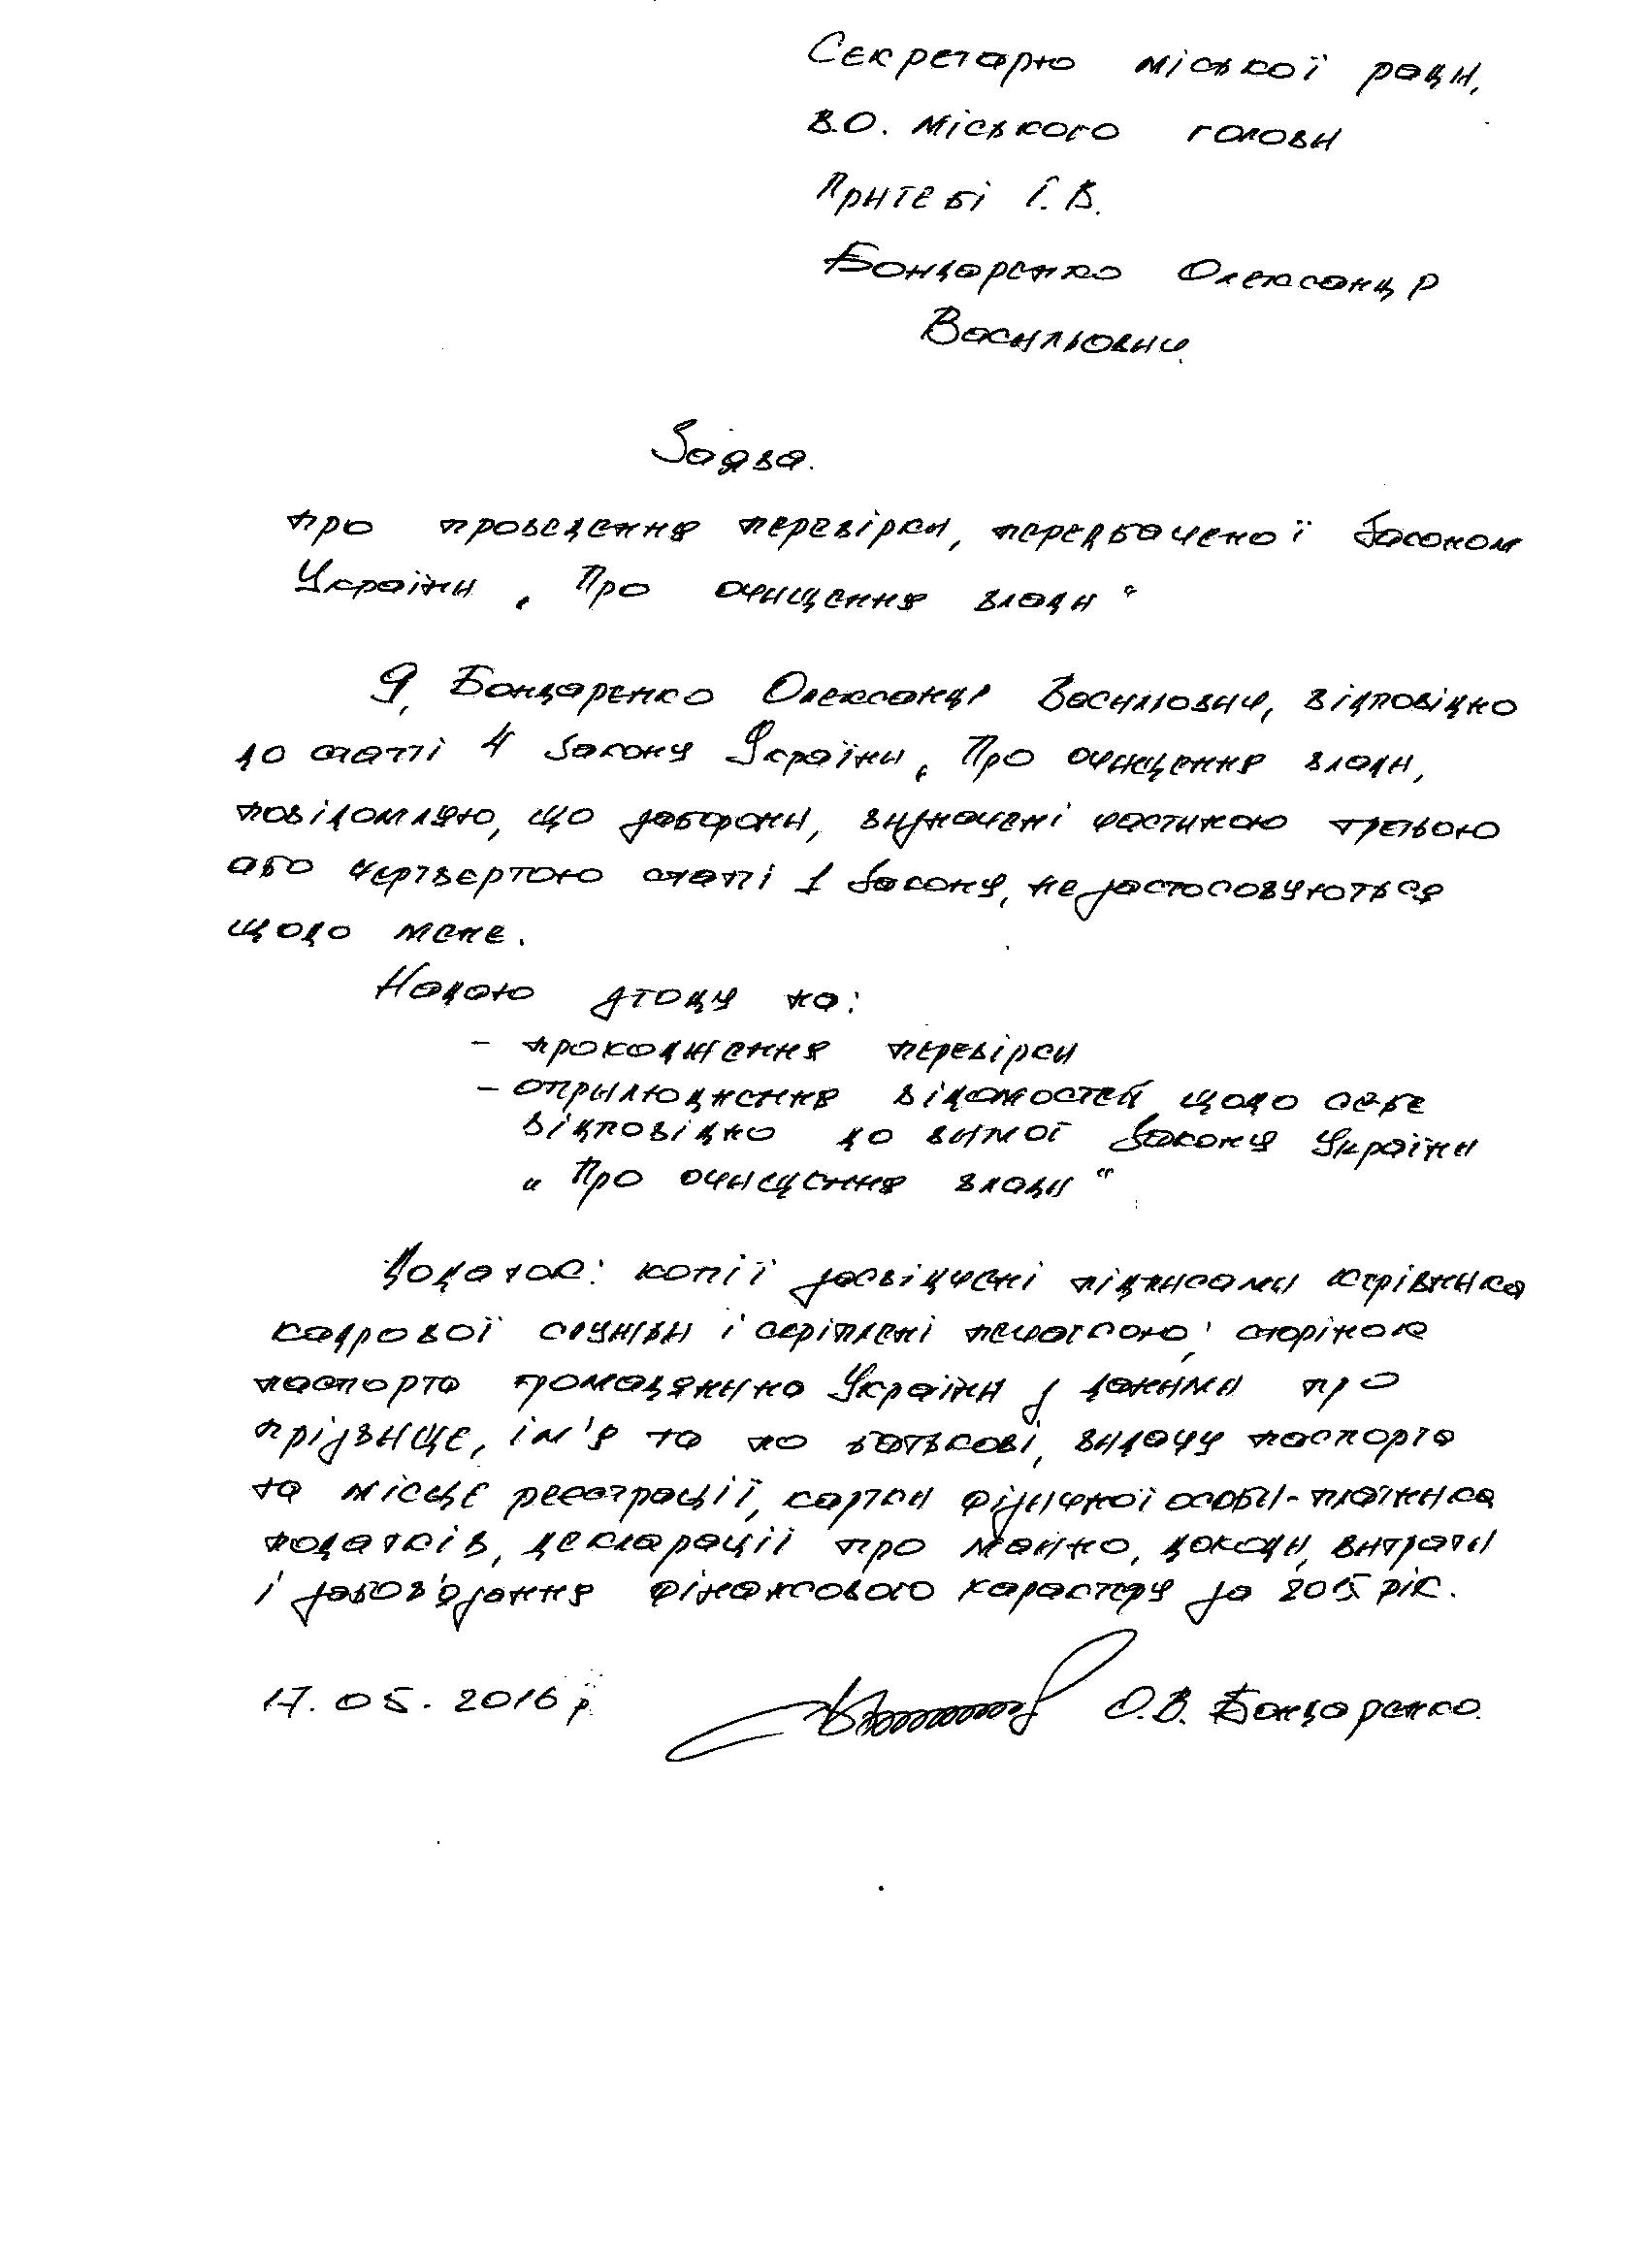 Секретарю міської ради,
в.о. міського голови
Притебі Г.В.
Бондаренко Олександр
Васильович.
Заява.
про проведення перевірки, передбаченої Законом
України „Про очищення влади“
Я, Бондаренко Олександр Васильович, відповідно
до статті 4 Закону України „Про очищення влади,
повідомляю, що заборони, визначені частиною третьою
або четвертою статті 1 Закону, не застосовуються
щодо мене.
Надаю згоду на:
- проходження перевірки
- оприлюднення відомостей щодо себе
відповідно до вимог Закону України
„Про очищення влади“
Додаток: копії засвідчені підписами керівника
кадрової служби і скріплені печаткою: сторінок
паспорта громадянина України з даними про
прізвище, ім'я та по батькові, видачу паспорта
та місце реєстрації, картки фізичної особи-платника
податків, декларації про майно, доходи, витрати
і зобов'язання фінансового характеру за 2015 рік.
17.05.2016 р. О.В. Бондаренко.